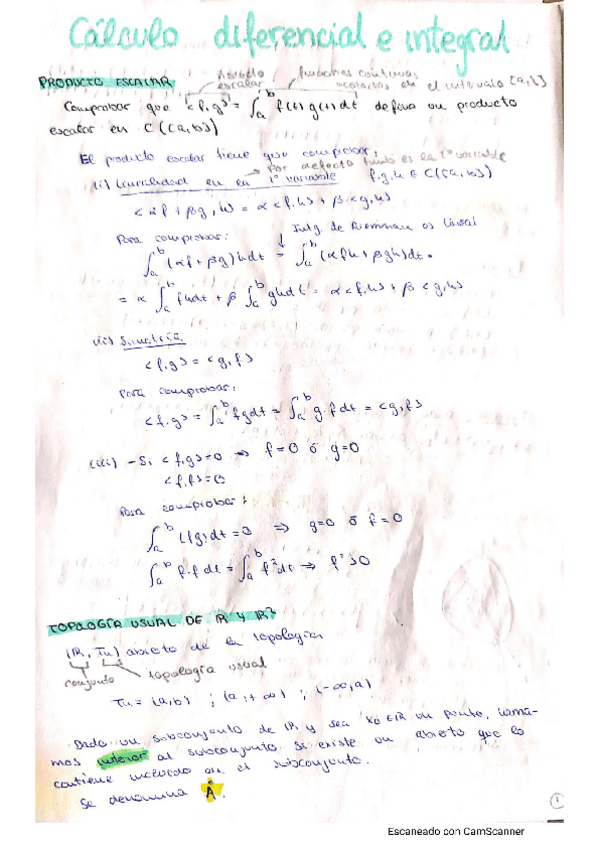 Cálculo diferencial e integral
PRODUCTO ESCALAR
escalar funciones continuas en el intervalo [a,b]
Comprobar que <f,g> = ∫ₐᵇ f(t)g(t)dt defina un producto
escalar en C([a,b])
El producto escalar tiene que comprobar:
→ Por defecto es la 1ª variable
(i) Linealidad en la 1ª variable f,g,h ∈ C([a,b])
<αf + βg, h> = α<f,h> + β<g,h>
Para comprobar: Intg. de Riemann es lineal
∫ₐᵇ (αf + βg)h dt = ∫ₐᵇ (αfh + βgh)dt =
= α ∫ₐᵇ fh dt + β ∫ₐᵇ gh dt = α<f,h> + β<g,h>
(ii) Simetría
<f,g> = <g,f>
Para comprobar:
<f,g> = ∫ₐᵇ fg dt = ∫ₐᵇ g·f dt = <g,f>
(iii) - Si <f,g> = 0 ⇒ f=0 ó g=0
<f,f> = 0
Para comprobar:
∫ₐᵇ (fg)dt = 0 ⇒ g=0 ó f=0
∫ₐᵇ f·f dt = ∫ₐᵇ f² dt ⇒ f² > 0
TOPOLOGÍA USUAL DE ℝ Y ℝ²
(ℝ, Tu) abierto de la topología
conjunto topología usual
Tu = (a,b) ; (a,+∞) ; (-∞,a)
Dado un subconjunto de ℝ y sea x₀∈ℝ un punto, llama-
mos interior al subconjunto si existe un abierto que lo
contiene incluido en el subconjunto.
Se denomina Å.
1
Escaneado con CamScanner